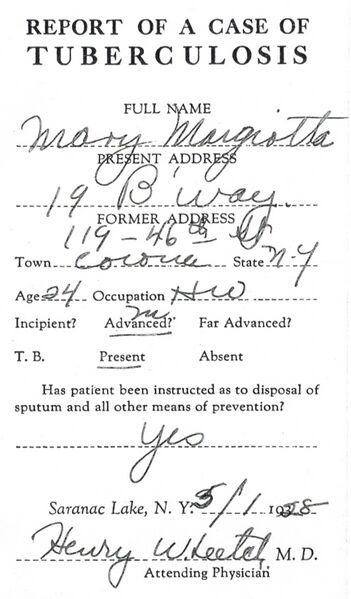 REPORT OF A CASE OF
TUBERCULOSIS
FULL NAME
Mary Margiotta
PRESENT ADDRESS
19 B'way.
FORMER ADDRESS
119-46th St
Town Corona State N-Y
Age 24 Occupation HW
Incipient? Advanced? Far Advanced?
m
T. B. Present Absent
Has patient been instructed as to disposal of
sputum and all other means of prevention?
yes
Saranac Lake, N. Y. 5/1 1928
Henry W. Leetch, M. D.
Attending Physician